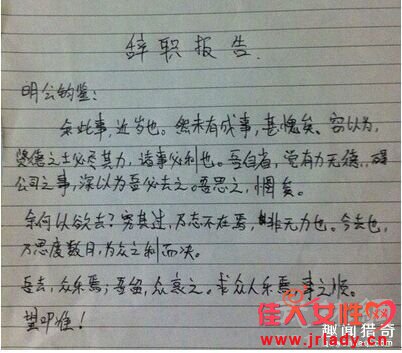 辞职报告.
明公钧鉴:
余此事,近岁也。然未有成事,甚愧矣。窃以为,
德之士必尽其力,诸事必利也。吾自省,觉有力无德,碍
公司之事,深以为吾必去之。吾思之,惆矣。
余何以欲去?究其过,乃志不在焉,非无力也。今去也,
乃思度数月,为众之利而决。
吾去,众乐焉;吾留,众哀之。求众人乐焉,事之顺。
望叩准!
佳人女性网
www.jrlady.com
趣闻猎奇